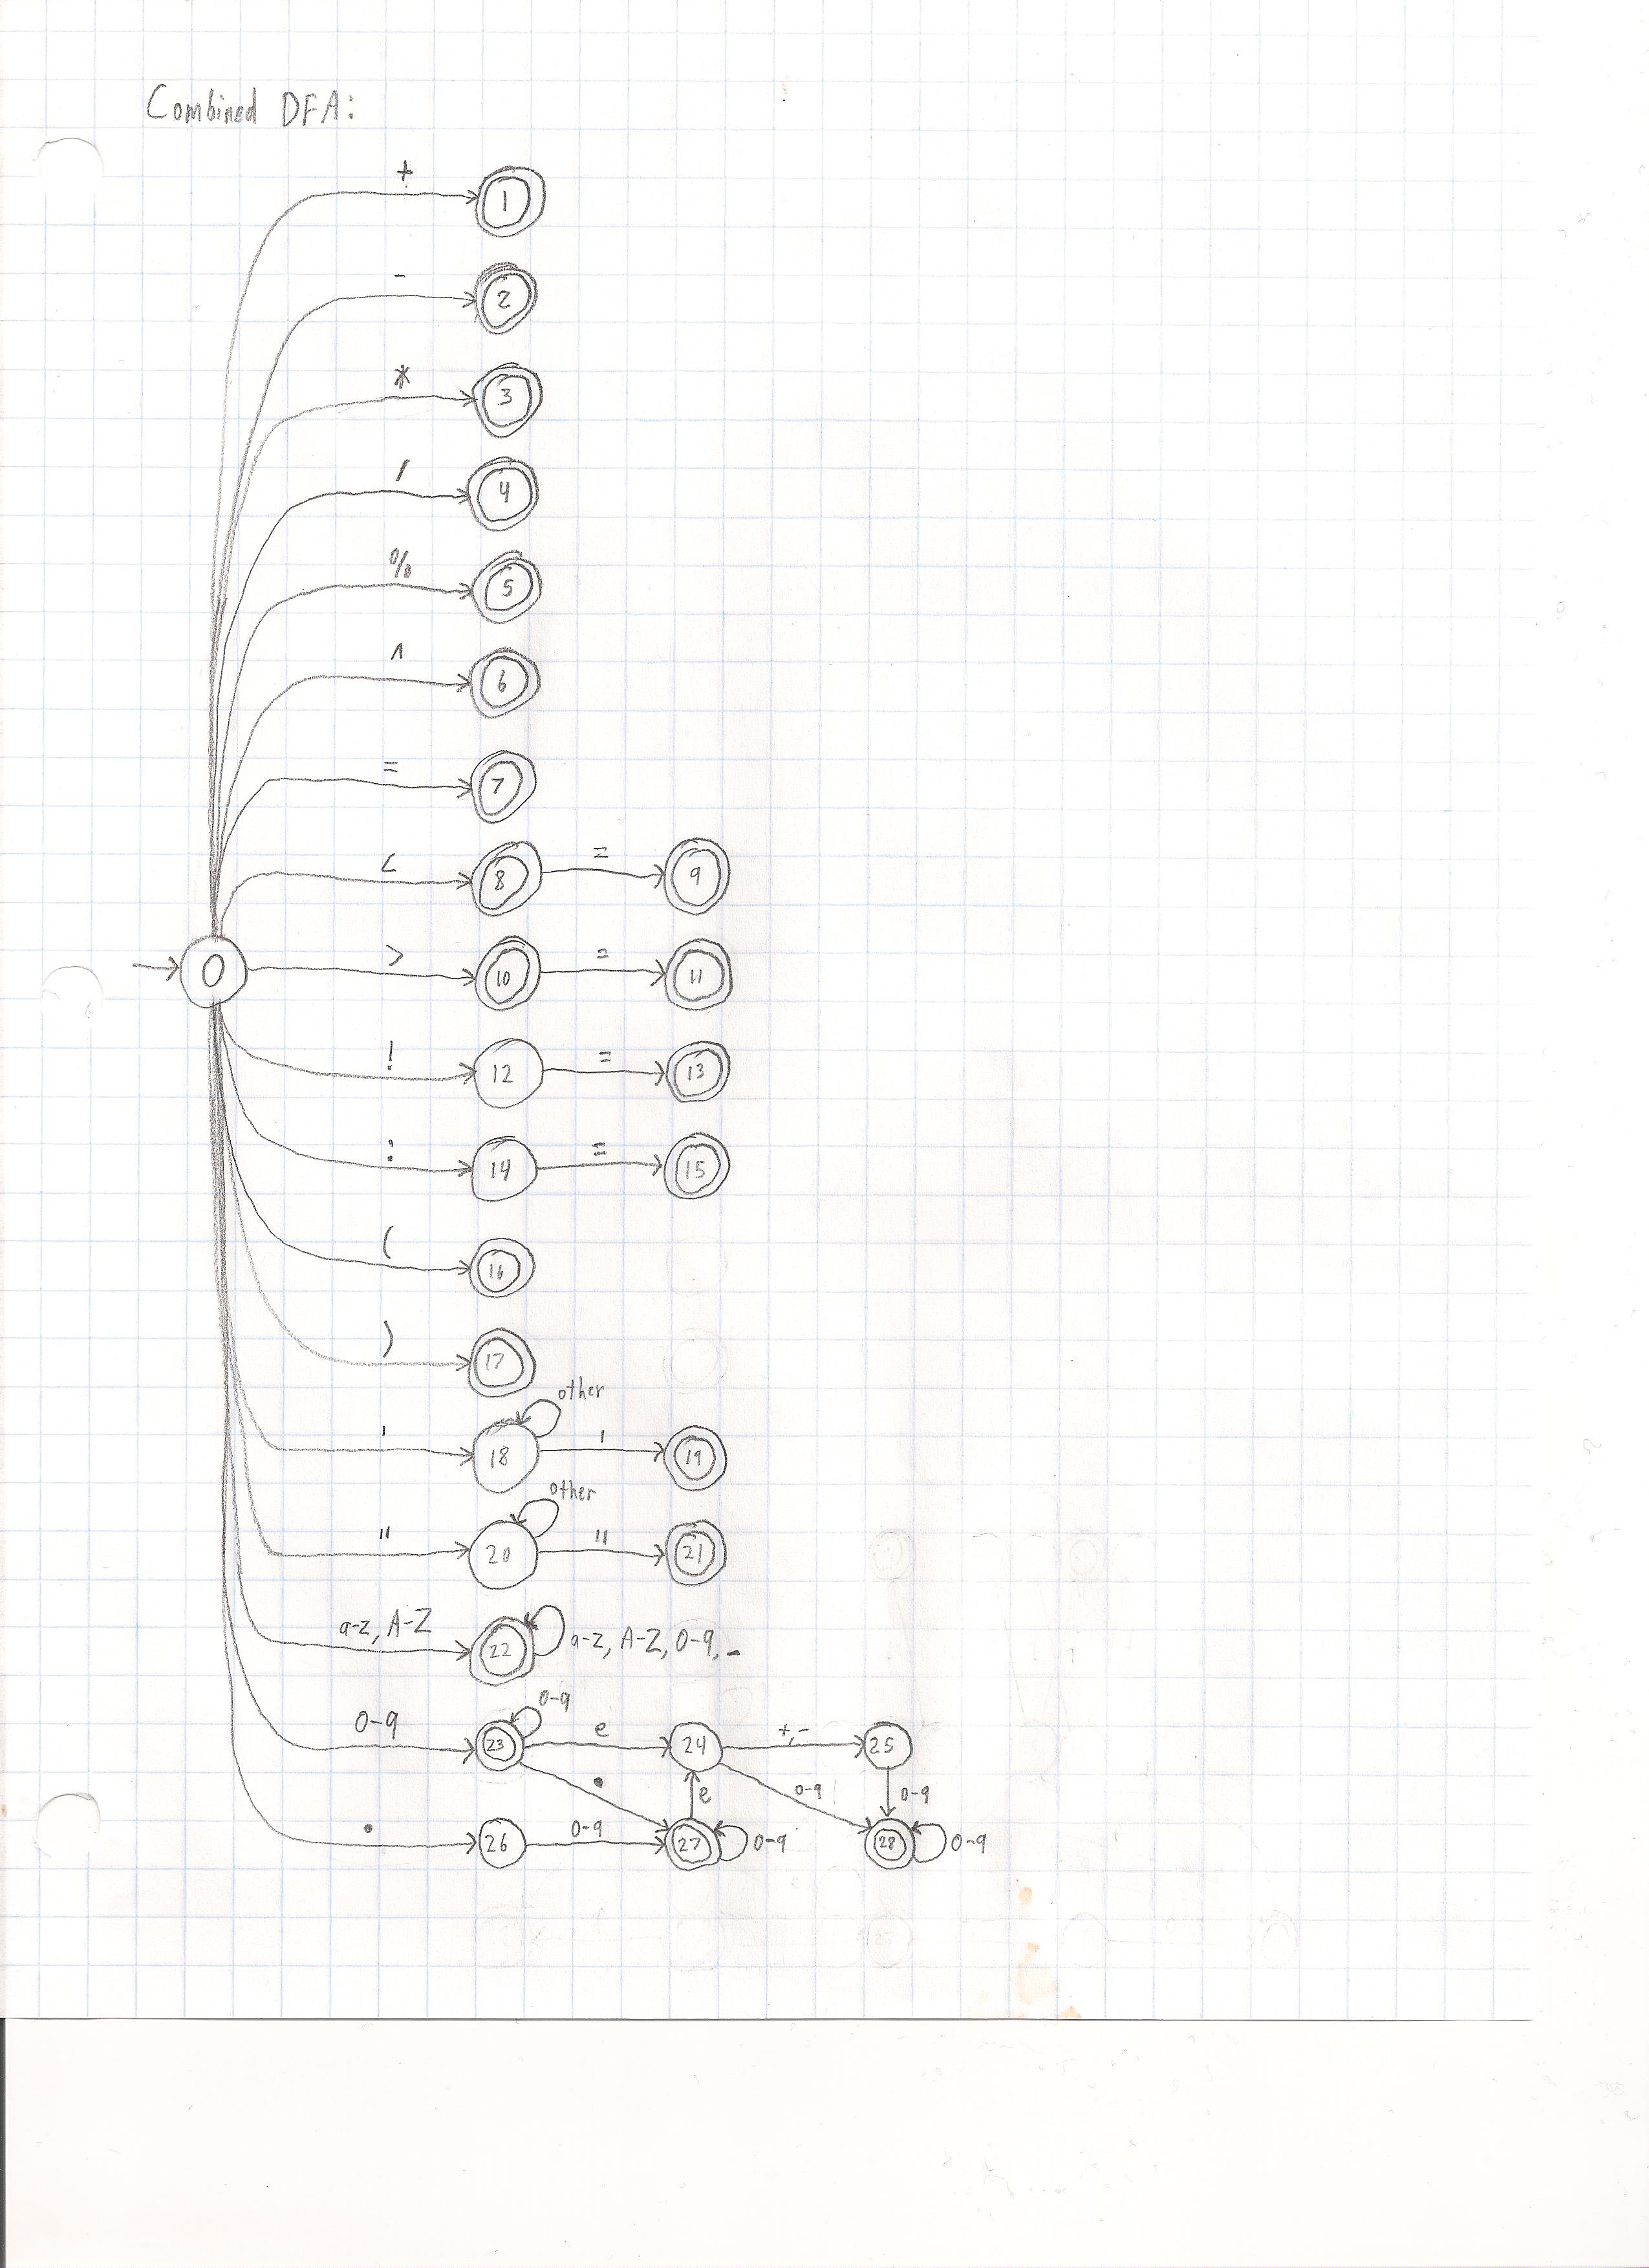 Combined DFA:
+
1
-
2
*
3
/
4
%
5
^
6
=
7
< 8 = 9
0 > 10 = 11
! 12 = 13
: 14 = 15
( 16
) 17
other
' 18 ' 19
other
" 20 " 21
a-z, A-Z 22 a-z, A-Z, 0-9, _
0-9
0-9 23 e 24 +,- 25
. 0-9
e 0-9
. 26 0-9 27 0-9 28 0-9